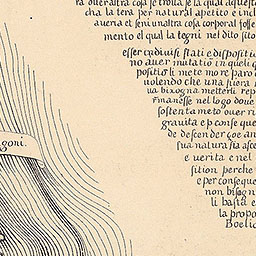 ra overaltra cosa se trova se la qual aquest
cha la tera per natural apetito e incl
avena et seni unaltra cosa corporal fosse
mento el qual la tegni nel dito sito
esser indiuisi stati e dispositiu
no auer mutatio in queli q
positio li mete more paro
uolendo che una fiora
va bixogna metterli rep
rmanesse nel logo doue
sostenta meto ouer ri
grauita e p conse que
de descender çoe an
sua natura sia asce
e uerita e nel
sition perche
e per conseque
non bisogn
li basta e
la propo
Boelic
goni.